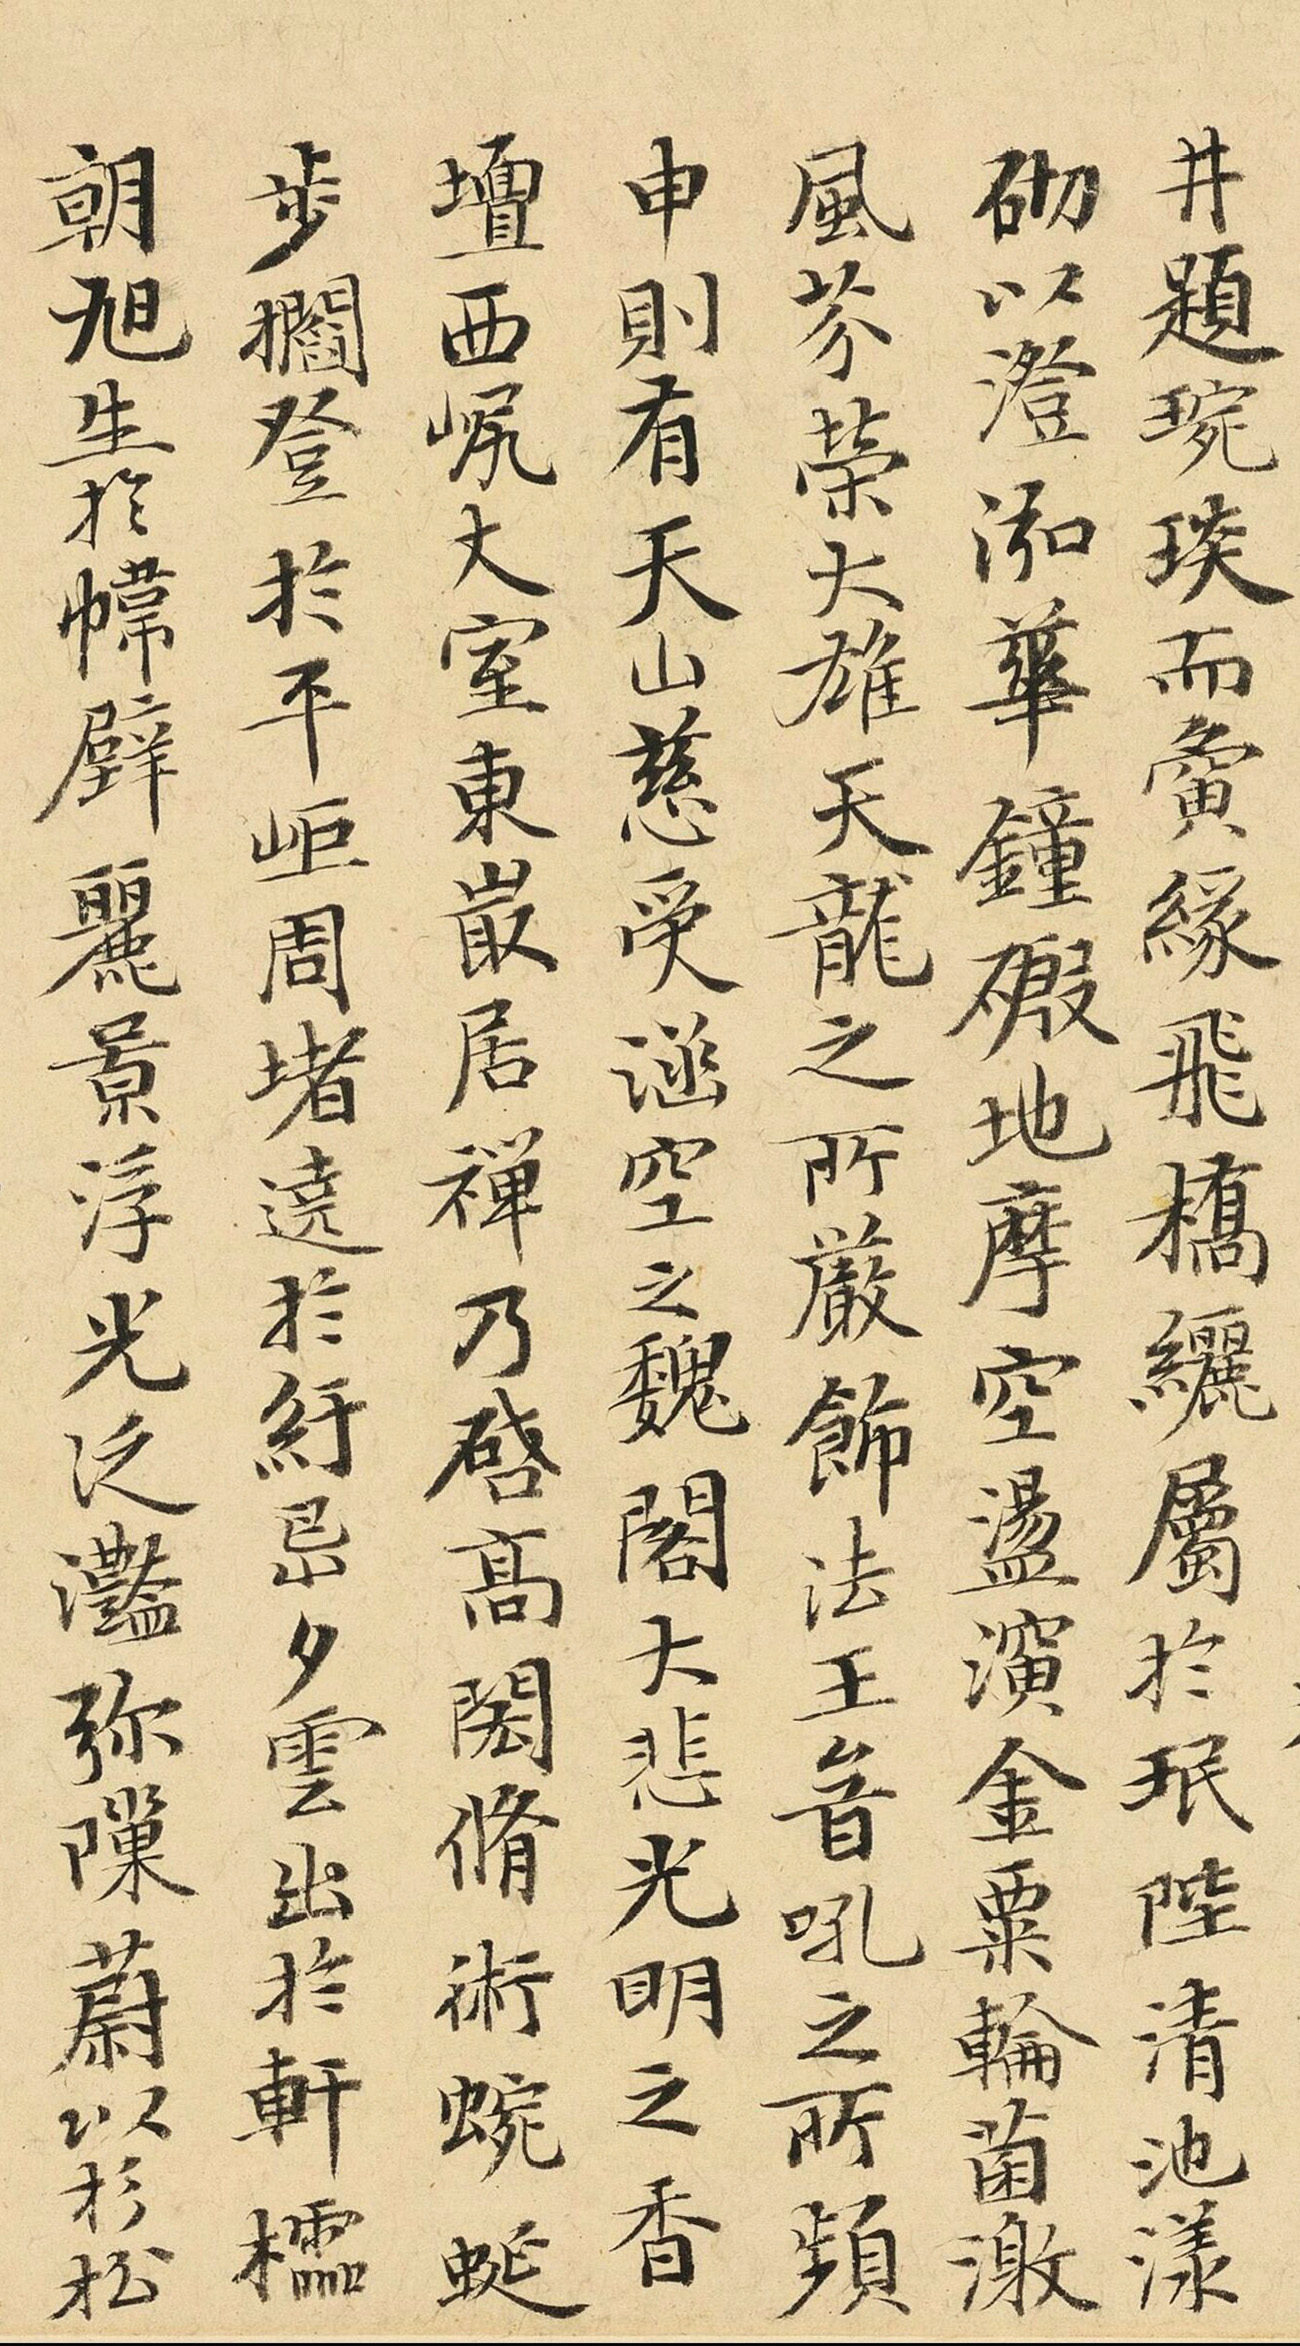 井題琬琰而夤緣飛橋纚屬於珉陸清池漾
砌以澄泓華鐘礮地摩空盪濵金粟輪菌激
風芬荣大雄天龍之所嚴飾法王音吼之所頻
申則有天山慈受涵空之魏閣大悲光明之香
壇西㞍大室東巖居禪乃啓高閎脩術蜿蜒
步櫩登於平岠周堵遶於紆㠱夕雲出於軒櫺
朝旭生於幃壁麗景浮光泛灎弥隟蔚以杉松